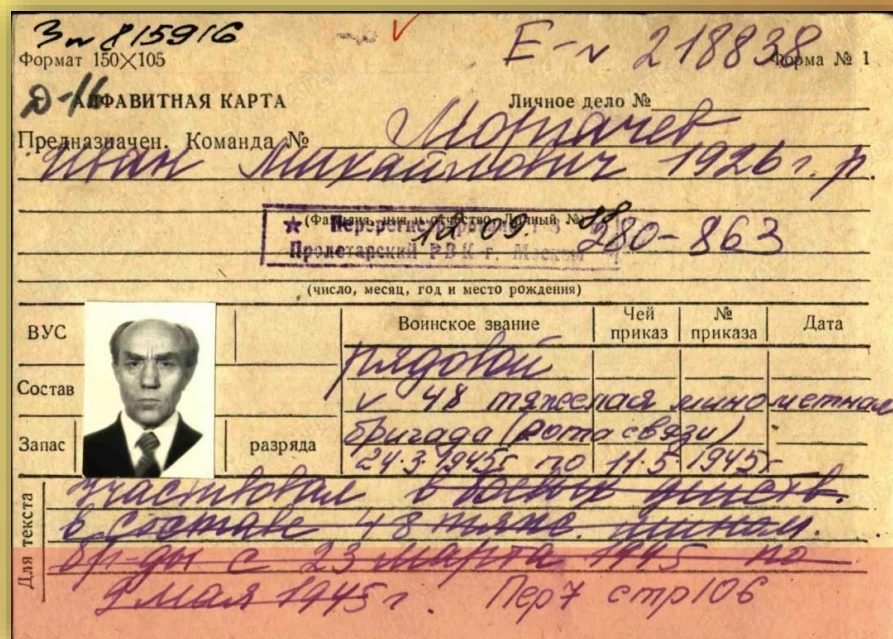 Зп 815916
Е-v 218838
Формат 150×105
Форма № 1
Д-16
АЛФАВИТНАЯ КАРТА
Личное дело №
Предназначен. Команда №
Иван Михайлович 1926 г. р.
(Фамилия, имя и отчество, Личный №)
★ Перерегистрирован
12 09. 88
280-863
Пролетарский РВК г. Москвы
(число, месяц, год и место рождения)
ВУС
Воинское звание
Чей приказ
№ приказа
Дата
рядовой
Состав
v 48 тяжелая минометная
Запас
разряда
бригада (рота связи)
24.3.1945г по 11.5.1945г
Для текста
участвовал в боевых действ.
в составе 48 тяж. мином.
бр-ды с 23 марта 1945 по
9 мая 1945 г. Пер 7 стр 106